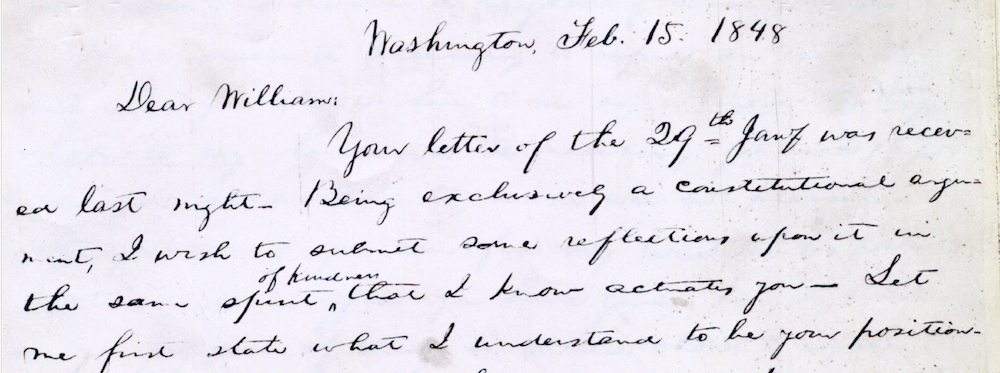 Washington, Feb. 15. 1848
Dear William:
Your letter of the 29th Jany was receiv=
ed last night— Being exclusively a constitutional argu=
ment, I wish to submit some reflections upon it in
of kindness
the same spirit ‸ that I know actuates you— Let
me first state what I understand to be your position—